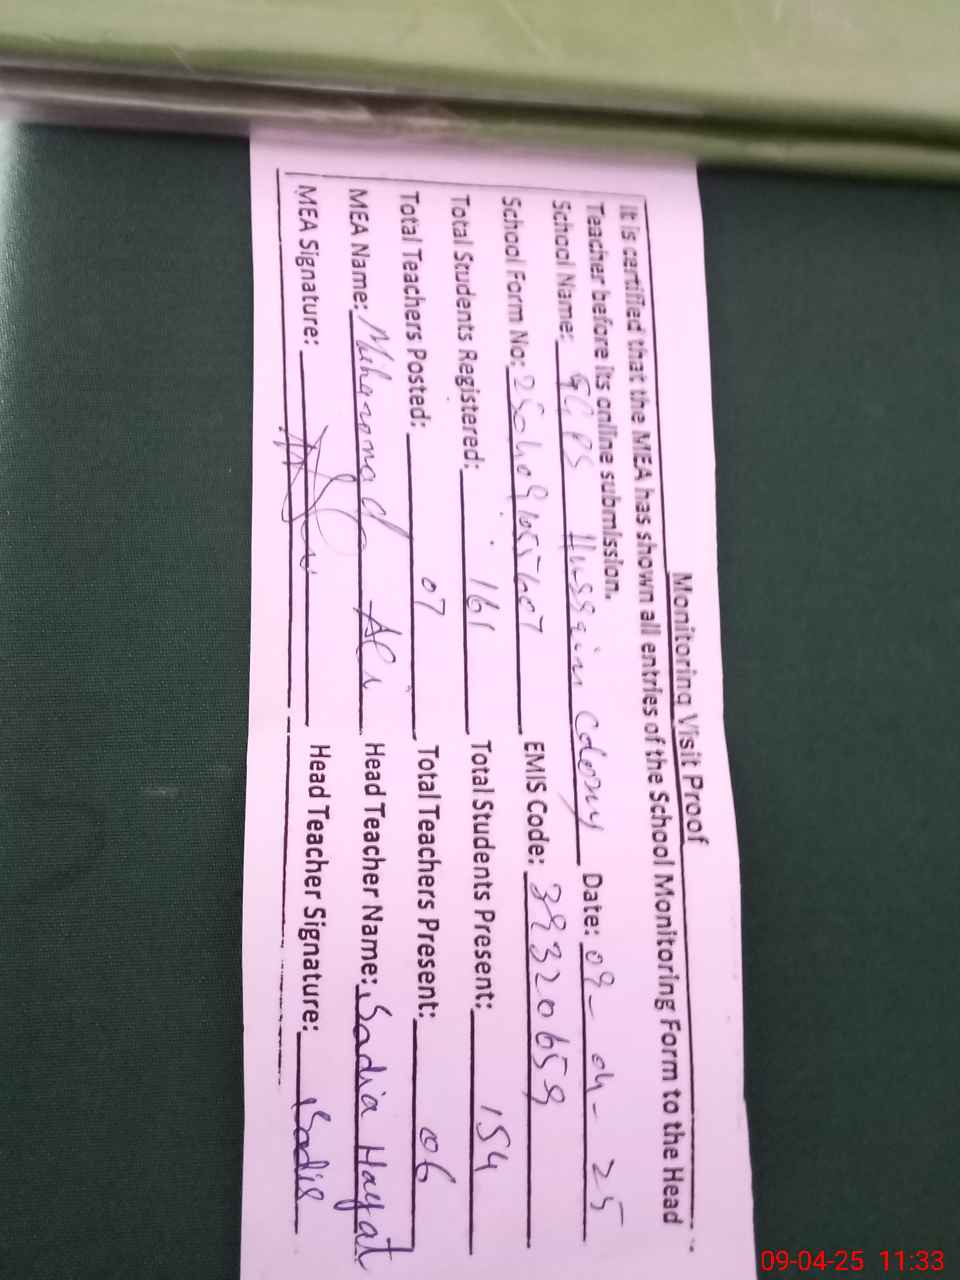 Monitoring Visit Proof
It is certified that the MEA has shown all entries of the School Monitoring Form to the Head
Teacher before its online submission.
School Name: GGPS Hussain Colony Date: 09-04-25
School Form No: EMIS Code: 39320659
Total Students Registered: 161 Total Students Present: 154
Total Teachers Posted: 07 Total Teachers Present: 06
MEA Name: Muhammad Ali Head Teacher Name: Sadia Hayat
MEA Signature: Head Teacher Signature: Sadia
09-04-25 11:33